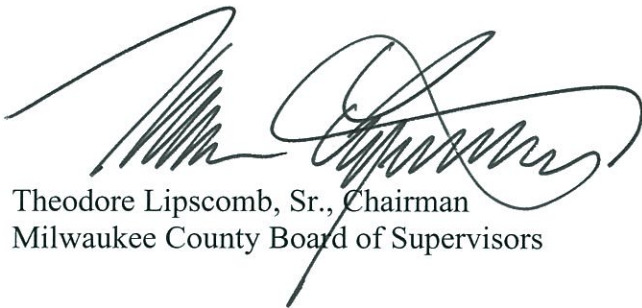 Theodore Lipscomb, Sr., Chairman
Milwaukee County Board of Supervisors